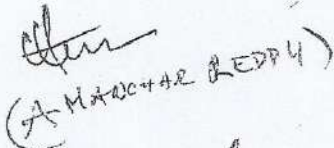 (A MANOHAR REDDY)